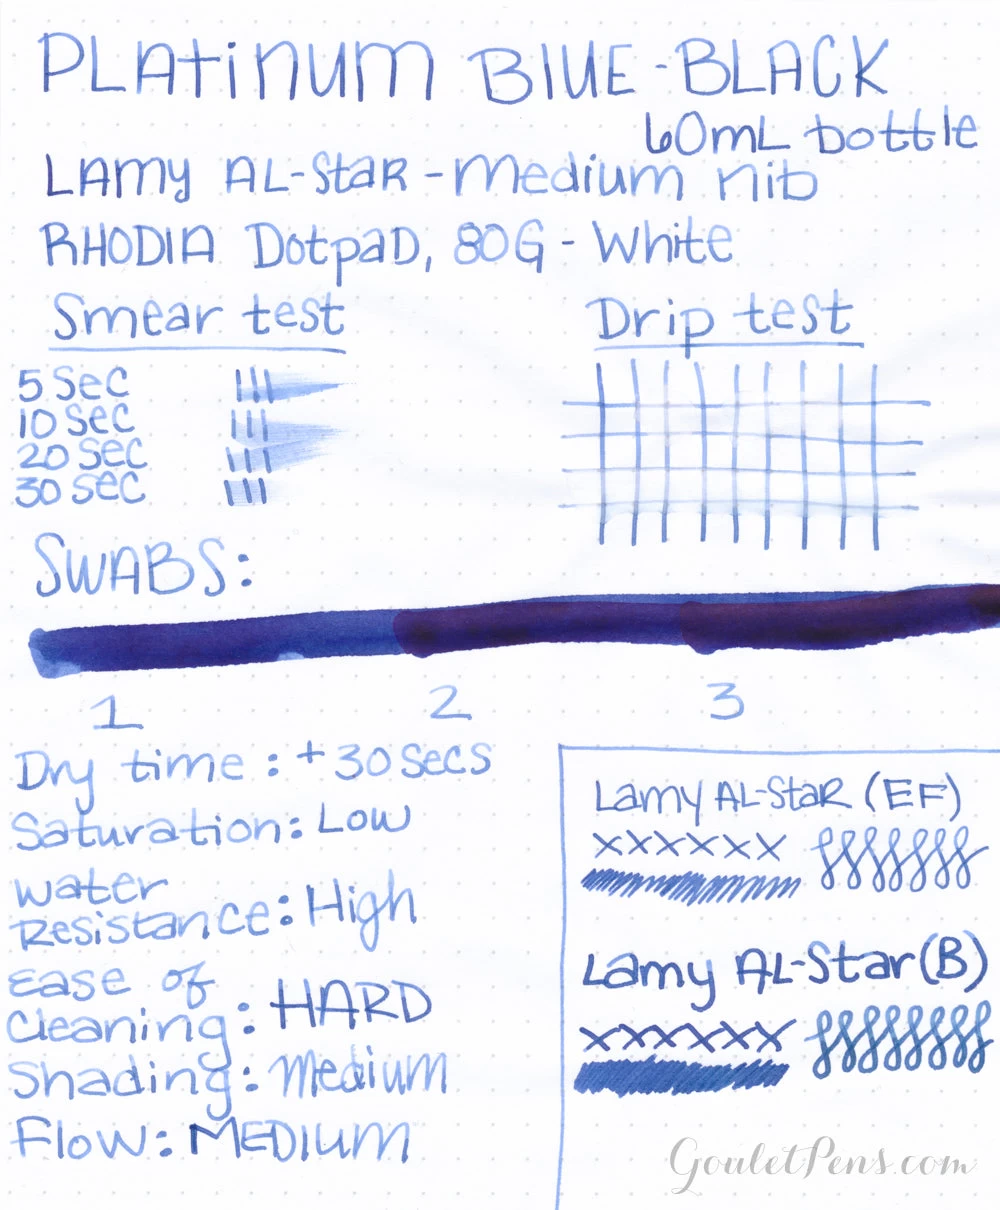 PLAtinum BlUE-BLACK
60mL bottle
LAmy AL-StaR - medium nib
RHODIA DotpaD, 80G - White
Smear test
Drip test
5 Sec
10 Sec
20 Sec
30 Sec
SWABS:
1 2 3
Dry time: +30 Secs
Saturation: Low
Water
Resistance: High
Ease of
Cleaning: HARD
Shading: Medium
Flow: MEDIUM
Lamy AL-StaR (EF)
xxxxxx
Lamy AL-Star (B)
xxxxxx
GouletPens.com